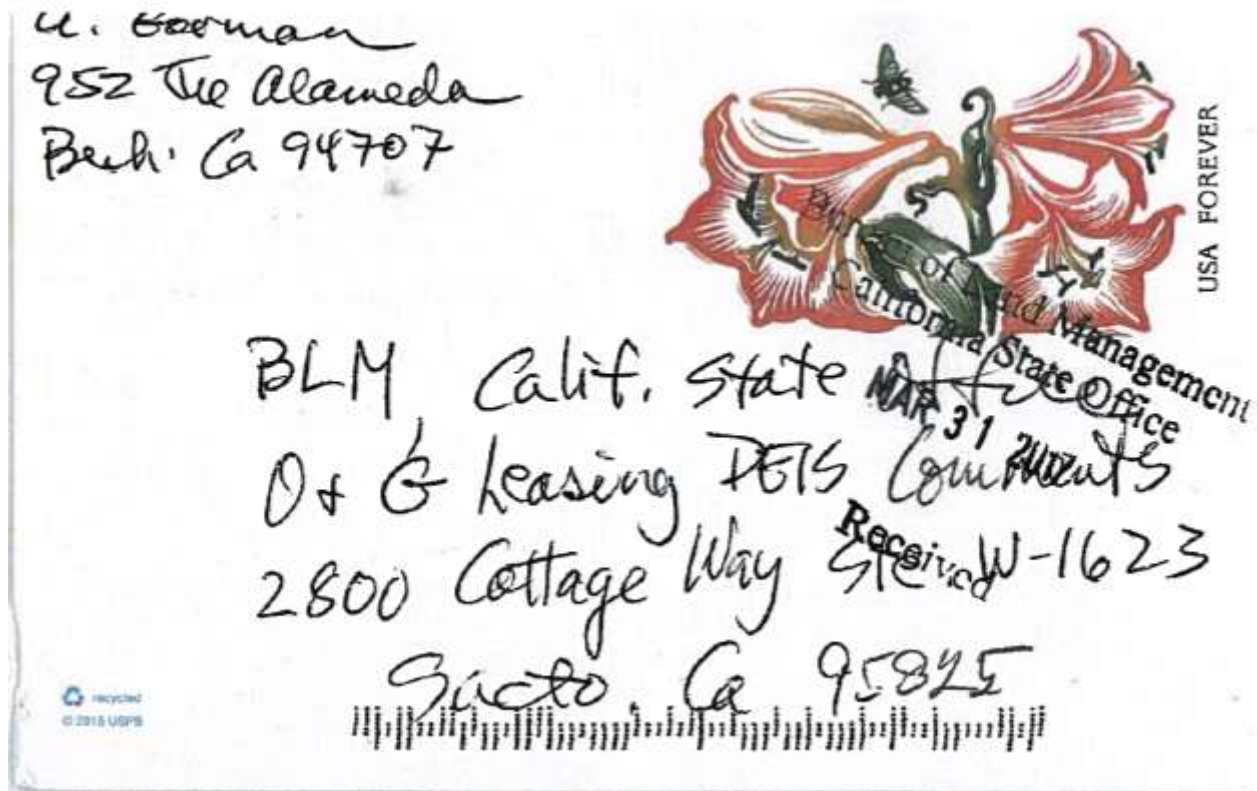 952 The Alameda
Berk. Ca 94707
USA FOREVER
Bureau of Land Management
California State Office
MAR 31
Received
BLM Calif. State Office
O + G Leasing DEIS Comments
2800 Cottage Way Ste W-1623
Sacto. Ca 95825
recycled
© 2015 USPS